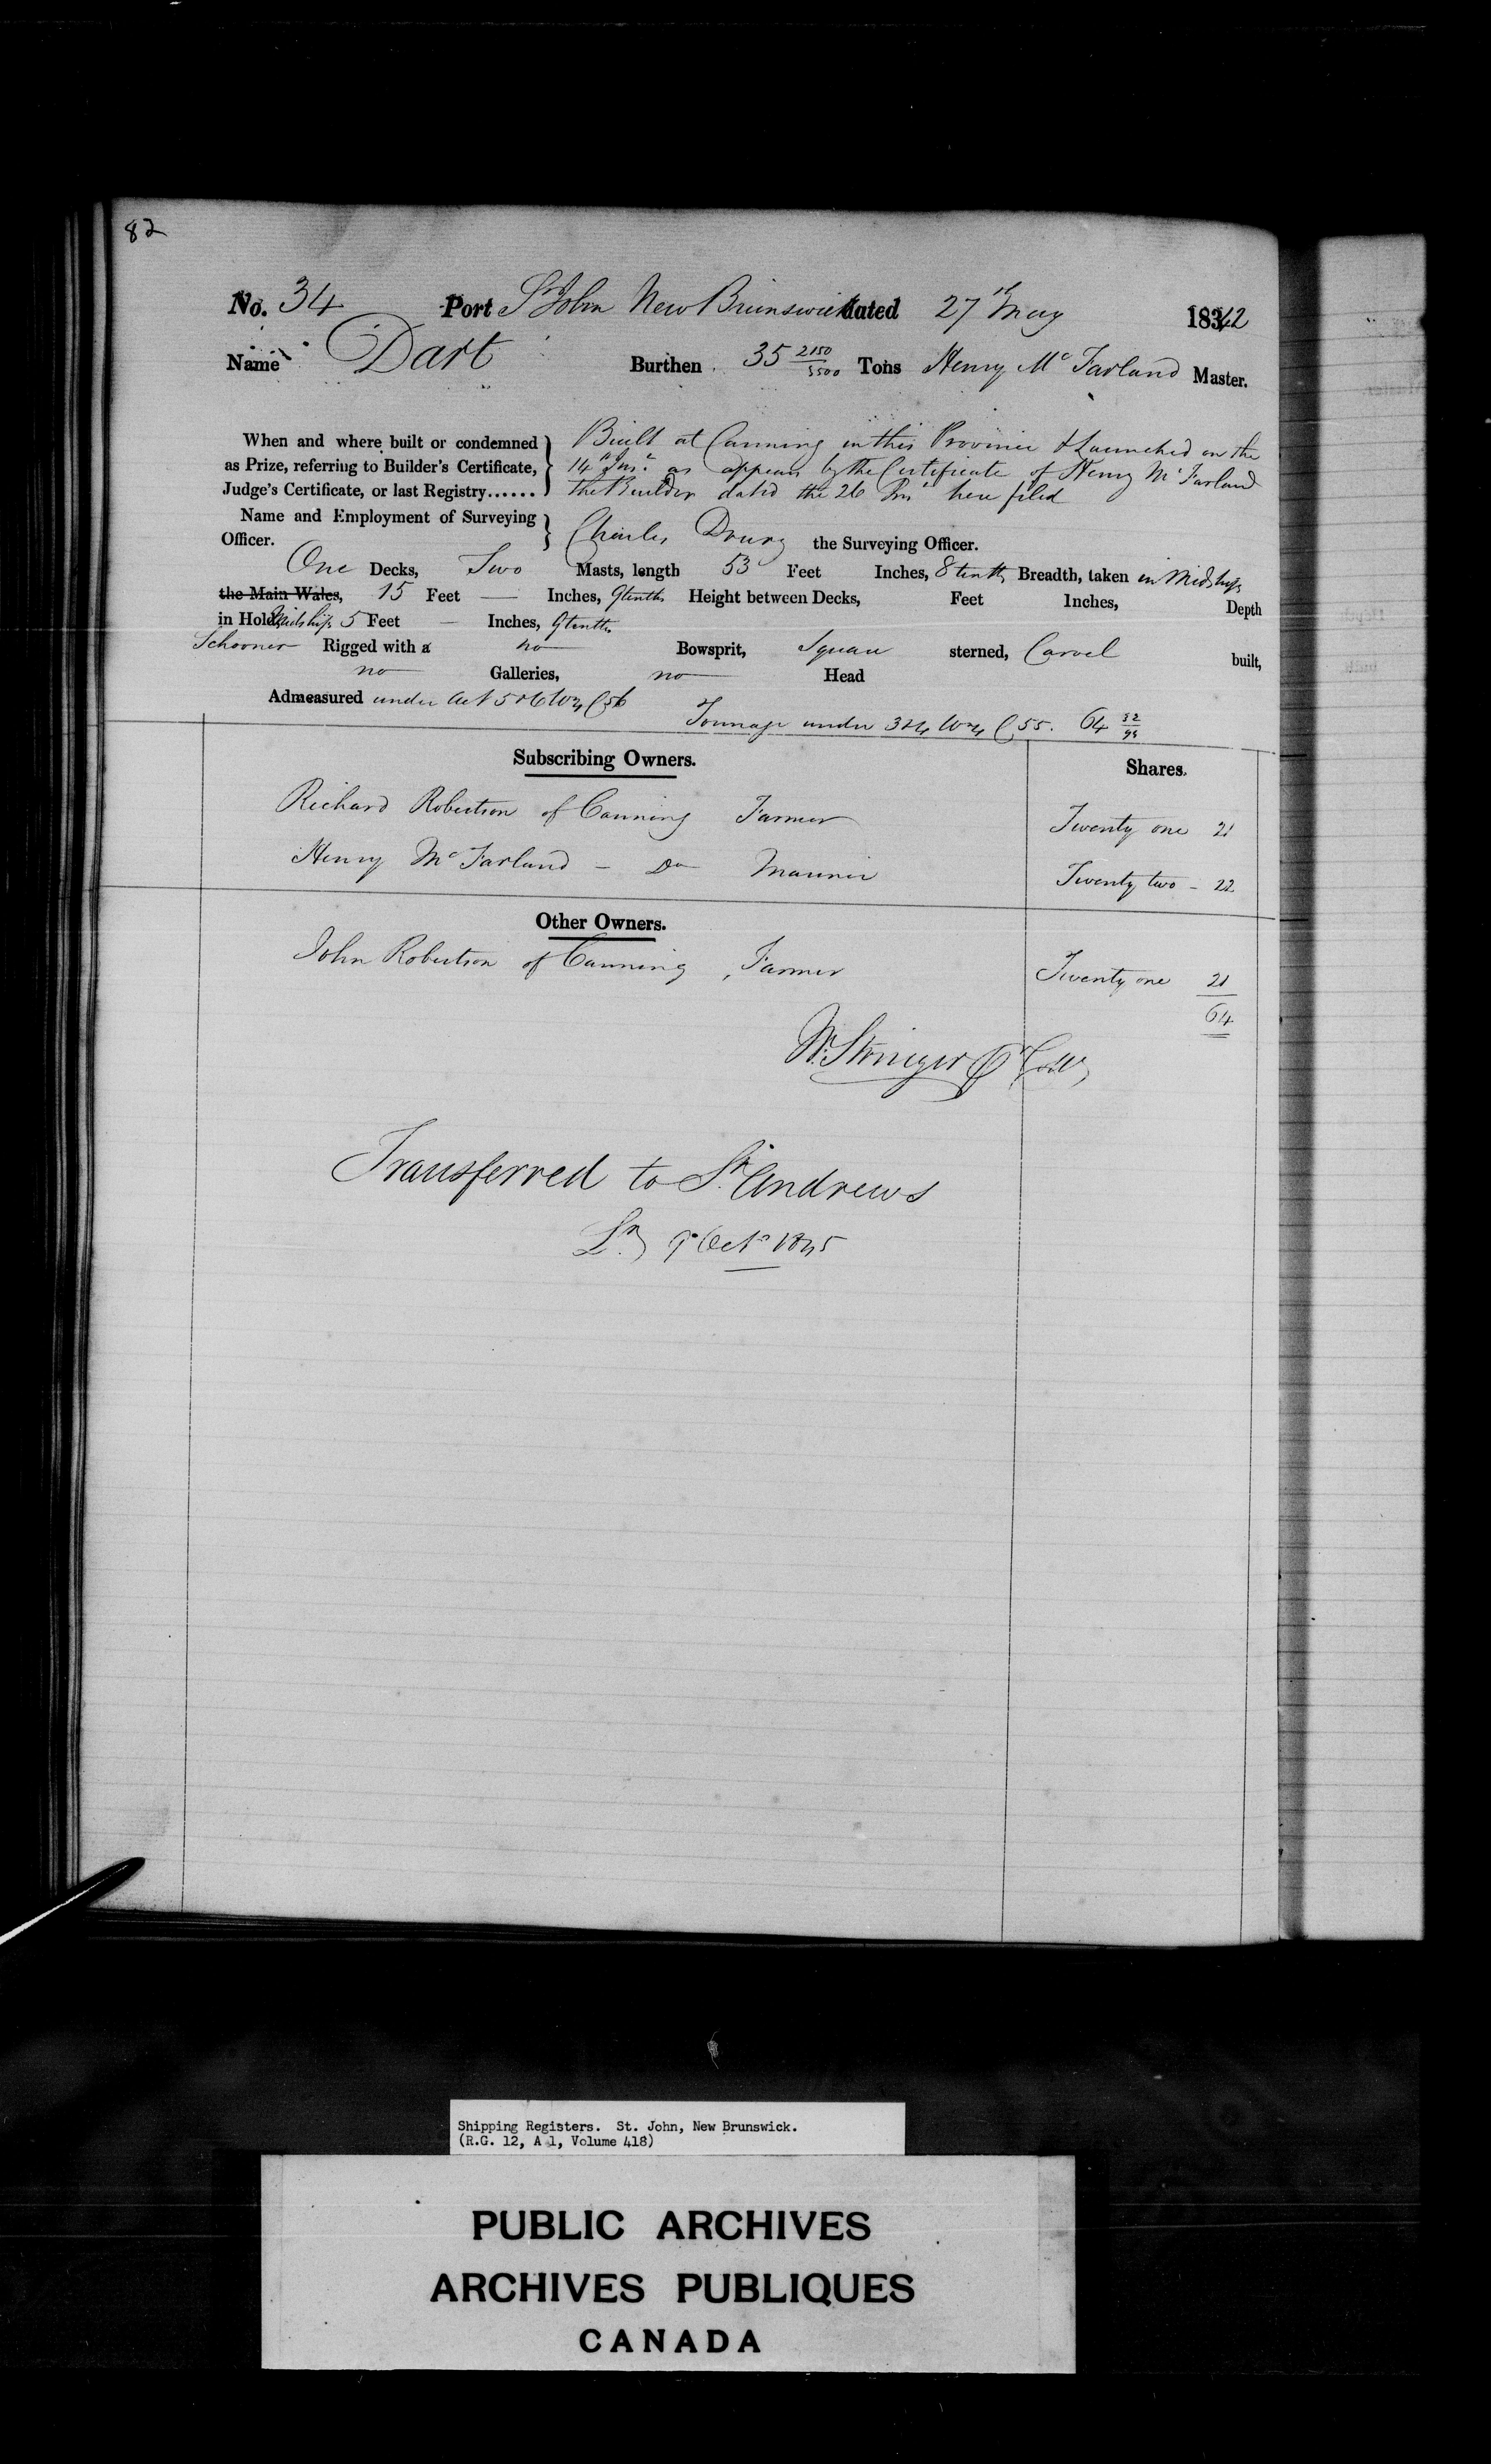 82
No. 34 Port St John New Brunswick dated 27th May 1842
Name Dart Burthen 35 2150/3500 Tons Henry McFarland Master.
When and where built or condemned } Built at Canning in this Province & Launched on the
as Prize, referring to Builder's Certificate, } 14th Inst as appears by the Certificate of Henry McFarland
Judge's Certificate, or last Registry...... } the Builder dated the 26 Inst here filed
Name and Employment of Surveying }
Officer. Charles Drury the Surveying Officer.
One Decks, Two Masts, length 53 Feet Inches, 8 tenths Breadth, taken in Midships
the Main Wales, 15 Feet — Inches, 9 tenths Height between Decks, Feet Inches, Depth
in Hold Midships 5 Feet — Inches, 9 tenths
Schooner Rigged with a no Bowsprit, Square sterned, Carvel built,
no Galleries, no Head
Admeasured under Act 5 & 6 Wm C 56
Tonnage under 3 & 4 Wm 4 C 55. 64 32/94
Subscribing Owners. Shares.
Richard Robertson of Canning Farmer Twenty one 21
Henry McFarland — Do Mariner Twenty two - 22
Other Owners.
John Robertson of Canning, Farmer Twenty one 21
64
Transferred to St Andrews
9 Octr 1845
Shipping Registers. St. John, New Brunswick.
(R.G. 12, A 1, Volume 418)
PUBLIC ARCHIVES
ARCHIVES PUBLIQUES
CANADA